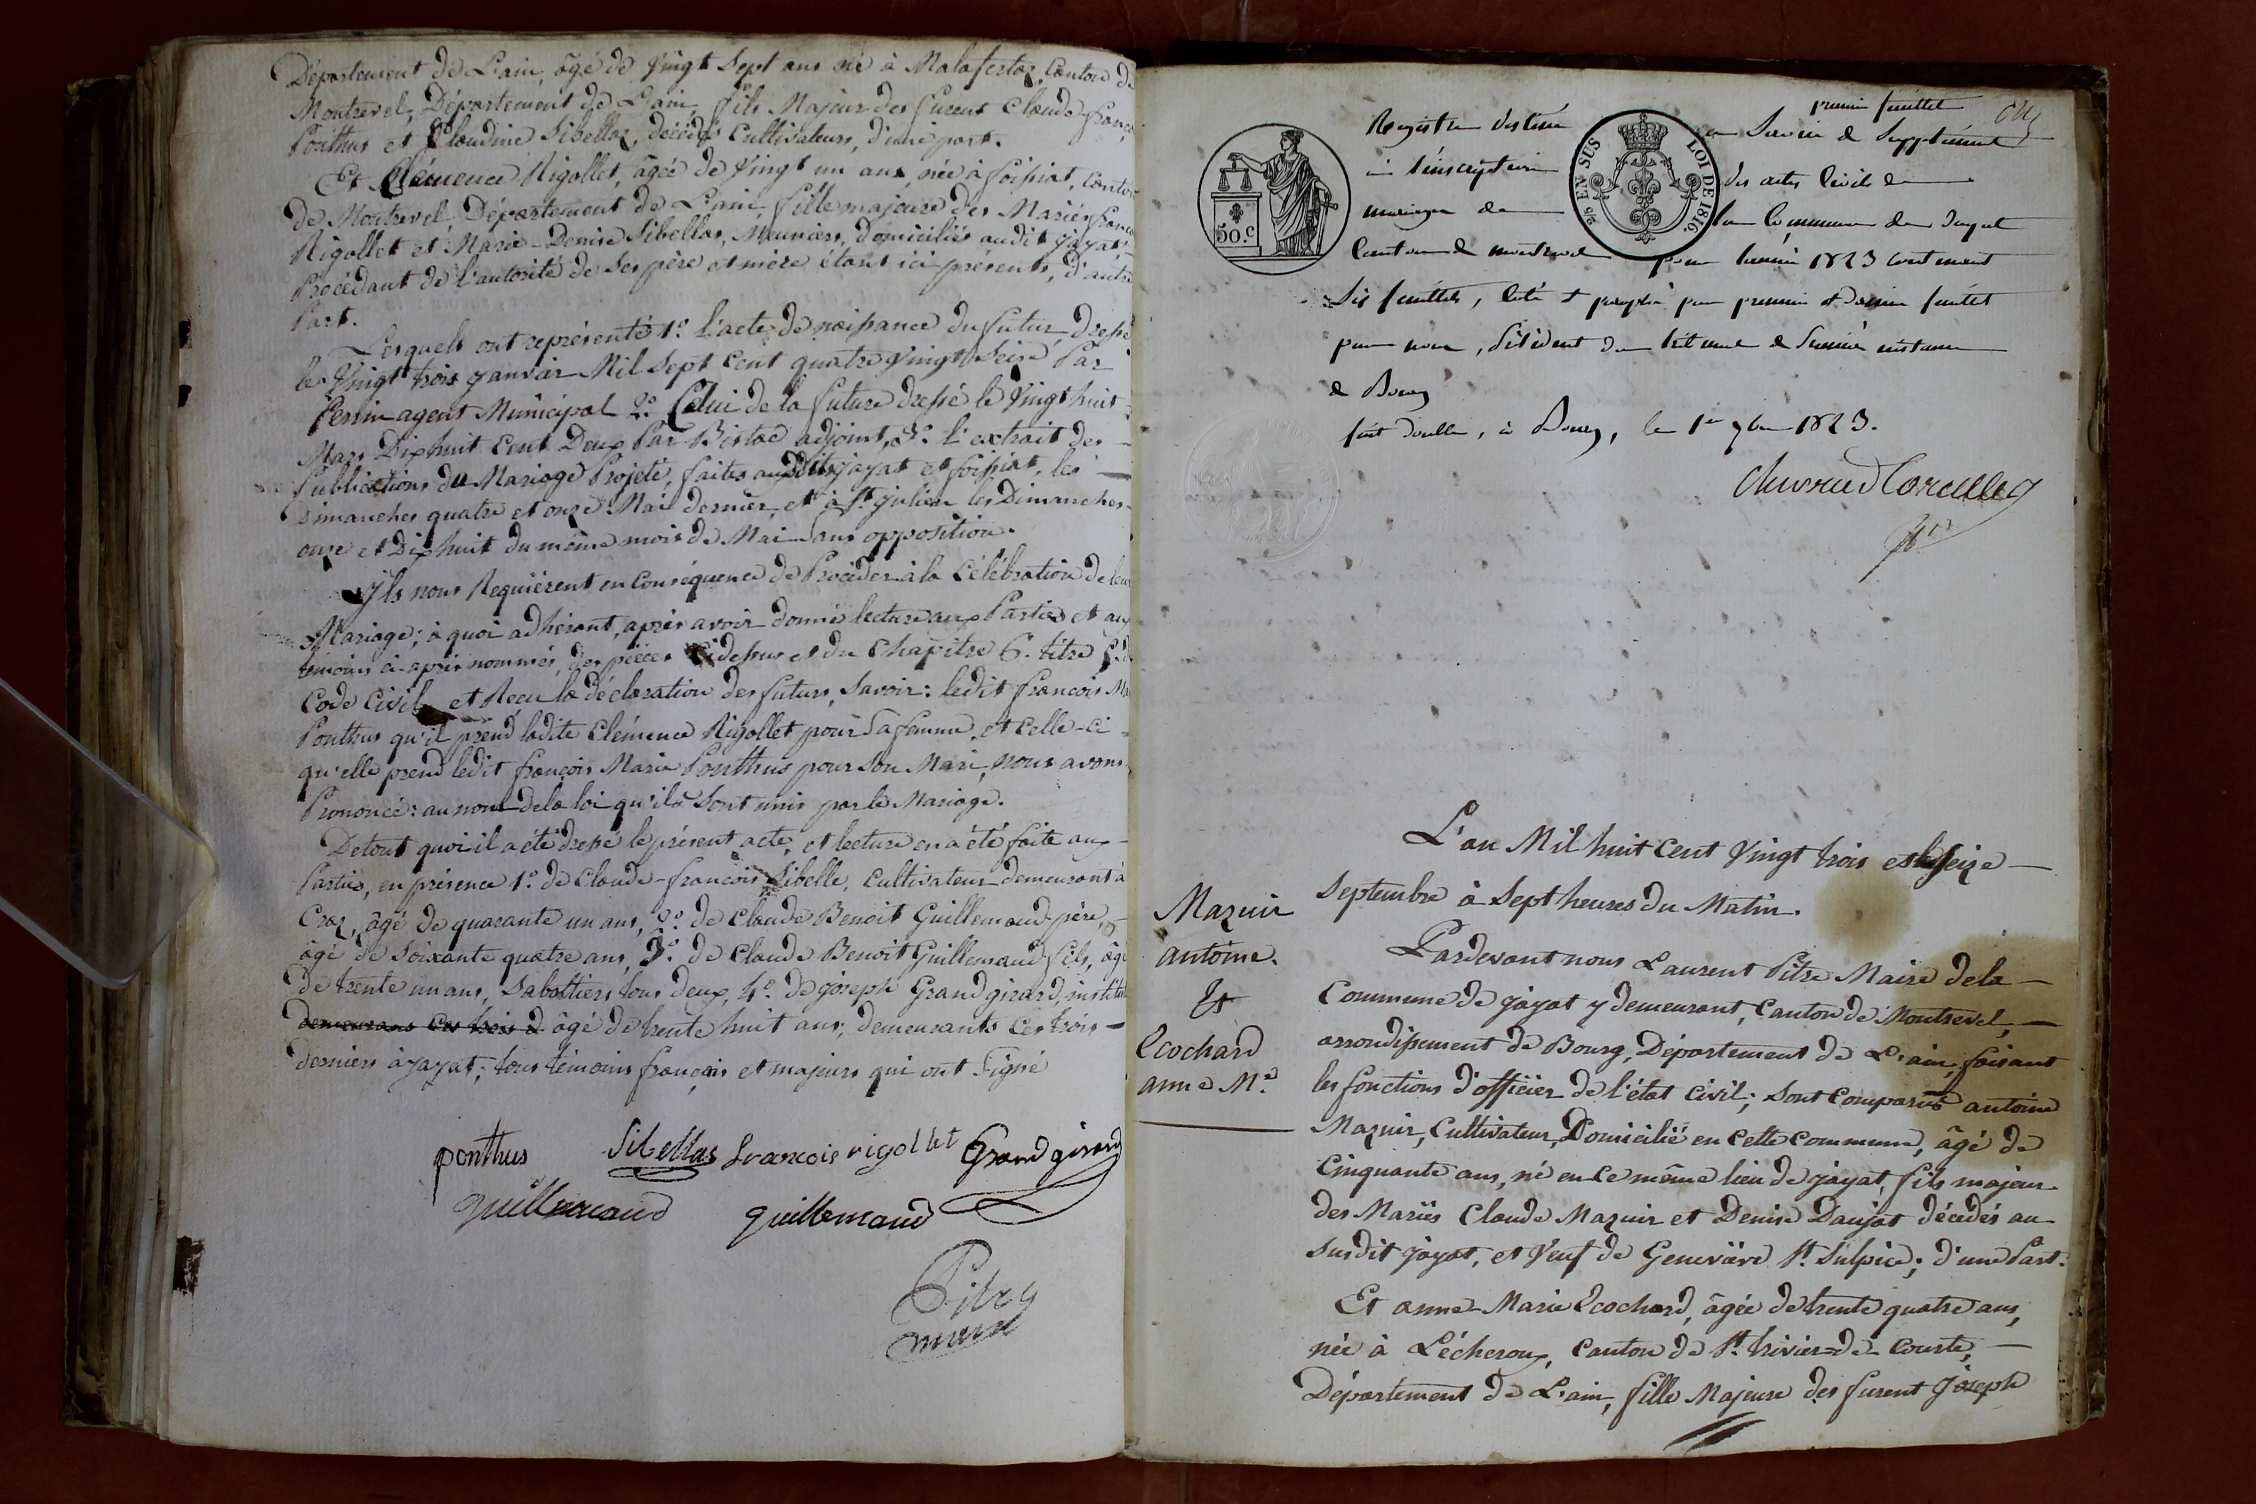 Département de L'ain, âgé de Vingt Sept ans né à Malafretaz, Canton de
Montrevel, Département de L'ain, fils Majeur des furent Claude françois
Ponthus et Claudine Sibellas, décédés Cultivateurs, d'une part.
Et Clémence Rigollet, âgée de Vingt un ans née à foissiat, Canton
de Montrevel, Département de L'ain, fille majeure des Mariés françois
Rigollet et Marie-Denise Sibellas, Meuniers, domiciliés audit jayat,
Procédant de l'autorité de Ses père et mère étant ici présents, d'autre
Part.
Lesquels ont représenté 1°. l'acte de naissance du futur dressé
le Vingt trois janvier Mil Sept Cent quatre Vingt Seize Par
Perrin agent Municipal 2°. Celui de la future dressé le Vingt huit
Mars Dixhuit Cent Deux Par Bistac adjoint, 3°. l'extrait des
Publications du Mariage Projeté, faites auxdits jayat et foissiat, les
dimanches quatre et onze Mai dernier, et à St. julien les Dimanches
onze et Dixhuit du même mois de Mai Sans opposition.
Ils nous Requièrent en Conséquence de Procéder à la Célébration de leur
Mariage; à quoi adhérant, après avoir donné lecture aux Parties et aux
témoins ci-après nommés, des pièces Cidessus et du Chapitre 6. titre 5. du
Code Civil et Reçu la déclaration des futurs, Savoir: ledit françois Marie
Ponthus qu'il prend ladite Clémence Rigollet pour Sa femme, et Celle-ci
qu'elle prend ledit françois Marie Ponthus pour Son Mari, nous avons
Prononcé: au nom de la loi qu'ils Sont unis par le Mariage.
De tout quoi il a été dressé le présent acte, et lecture en a été faite aux
Parties, en présence 1°. de Claude-françois Sibelle, Cultivateur demeurant à
Craz, âgé de quarante un ans, 2°. de Claude Benoit Guillemaud père,
âgé de Soixante quatre ans, 3°. de Claude Benoit Guillemaud fils, âgé
de trente un ans, Sabottiers tous deux, 4°. de joseph Grandgirard, instituteur
demeurans Ces trois d âgé de trente huit ans; demeurants Ces trois
derniers à jayat; tous témoins français et majeurs qui ont Signé
ponthus Sibellas francois rigollet Grandgirard
guillemaud guillemaud
Pitre
maire
premier feuillet
Registre destiné en Service de Supplément
à l'inscription des actes Civils de
mariages de la Commune de Jayat
Canton de montrevel pour l'année 1823 contenant
Six feuillets, Coté et paraphé par premier et dernier feuillet
par nous, Président du tribunal de Première instance
de Bourg
fait double, à Bourg, le 1er 7bre 1823.
50.C
EN SUS
LOI DE 1816.
L'an Mil huit Cent Vingt trois et le Seize
Septembre à Sept heures du Matin.
Mazuir
antoine.
Et
Ecochard
anne Mie.
Pardevant nous Laurent Pitre Maire de la
Commune de jayat y demeurant, Canton de Montrevel,
arrondissement de Bourg, Département de L'ain, faisant
les fonctions d'officier de l'état Civil; Sont Comparus antoine
Mazuir, Cultivateur, Domicilié en Cette Commune, âgé de
Cinquante ans, né en Ce même lieu de jayat, fils majeur
des Mariés Claude Mazuir et Denise Daujat décédés au
Susdit jayat, et Veuf de Geneviève St. Sulpice; d'une Part.
Et anne-Marie Ecochard, âgée de trente quatre ans,
née à Lécheroux, Canton de St. trivier-de-Courte,
Département de L'ain, fille Majeure des furent Joseph